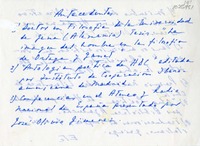 Antecedentes
1) Doctor en Filosofía de la Universidad
de Jena (Alemania) Tesis: La
imagen del hombre en la filosofía
de Ortega y Gasset
2) Antología poética de H.V. editada
por Instituto de Cooperación Ibero-
americana de Madrid
3) Conferencias en el Ateneo y Radio
Nacional de España preparado por
José Olivio Jiménez